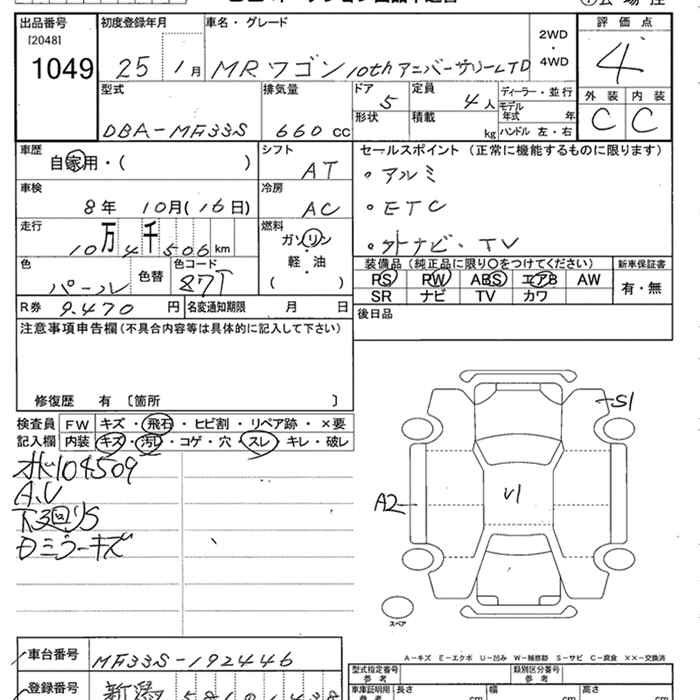 出品番号 初度登録年月 車名・グレード 評価点
[2048]
1049 25 1月 MRワゴン 10thアニバーサリーLTD 2WD・4WD 4
型式 排気量 ドア 5 定員 4人 ディーラー・並行 外装 内装
モデル年式 年
DBA-MF33S 660cc 形状 積載 kg ハンドル 左・右 C C
車歴 シフト セールスポイント (正常に機能するものに限ります)
自家用・( ) AT ・アルミ
車検 冷房
8年 10月(16日) AC ・ETC
走行 燃料
10万4千506km ガソリン ・外ナビ・TV
軽・油
色 色替 色コード ( ) 装備品 (純正品に限り〇をつけてください) 新車保証書
パール 87T PS PW ABS エアB AW 有・無
SR ナビ TV カワ
R券 9.470円 名変通知期限 月 日 後日品
注意事項申告欄 (不具合内容等は具体的に記入して下さい)
修復歴 有 [箇所 ]
検査員 FW キズ・飛石・ヒビ割・リペア跡・×要
記入欄 内装 キズ・汚れ・コゲ・穴・スレ・キレ・破レ
104509
A.U
下回りS
S1
A2
U1
スペア
A-キズ E-エクボ U-凹み W-補修跡 S-サビ C-腐食 ××-交換済
車台番号 MF33S-192446
型式指定番号 参考 類別区分番号 参考
登録番号 新潟
車庫証明用 参考 長さ 幅 高さ